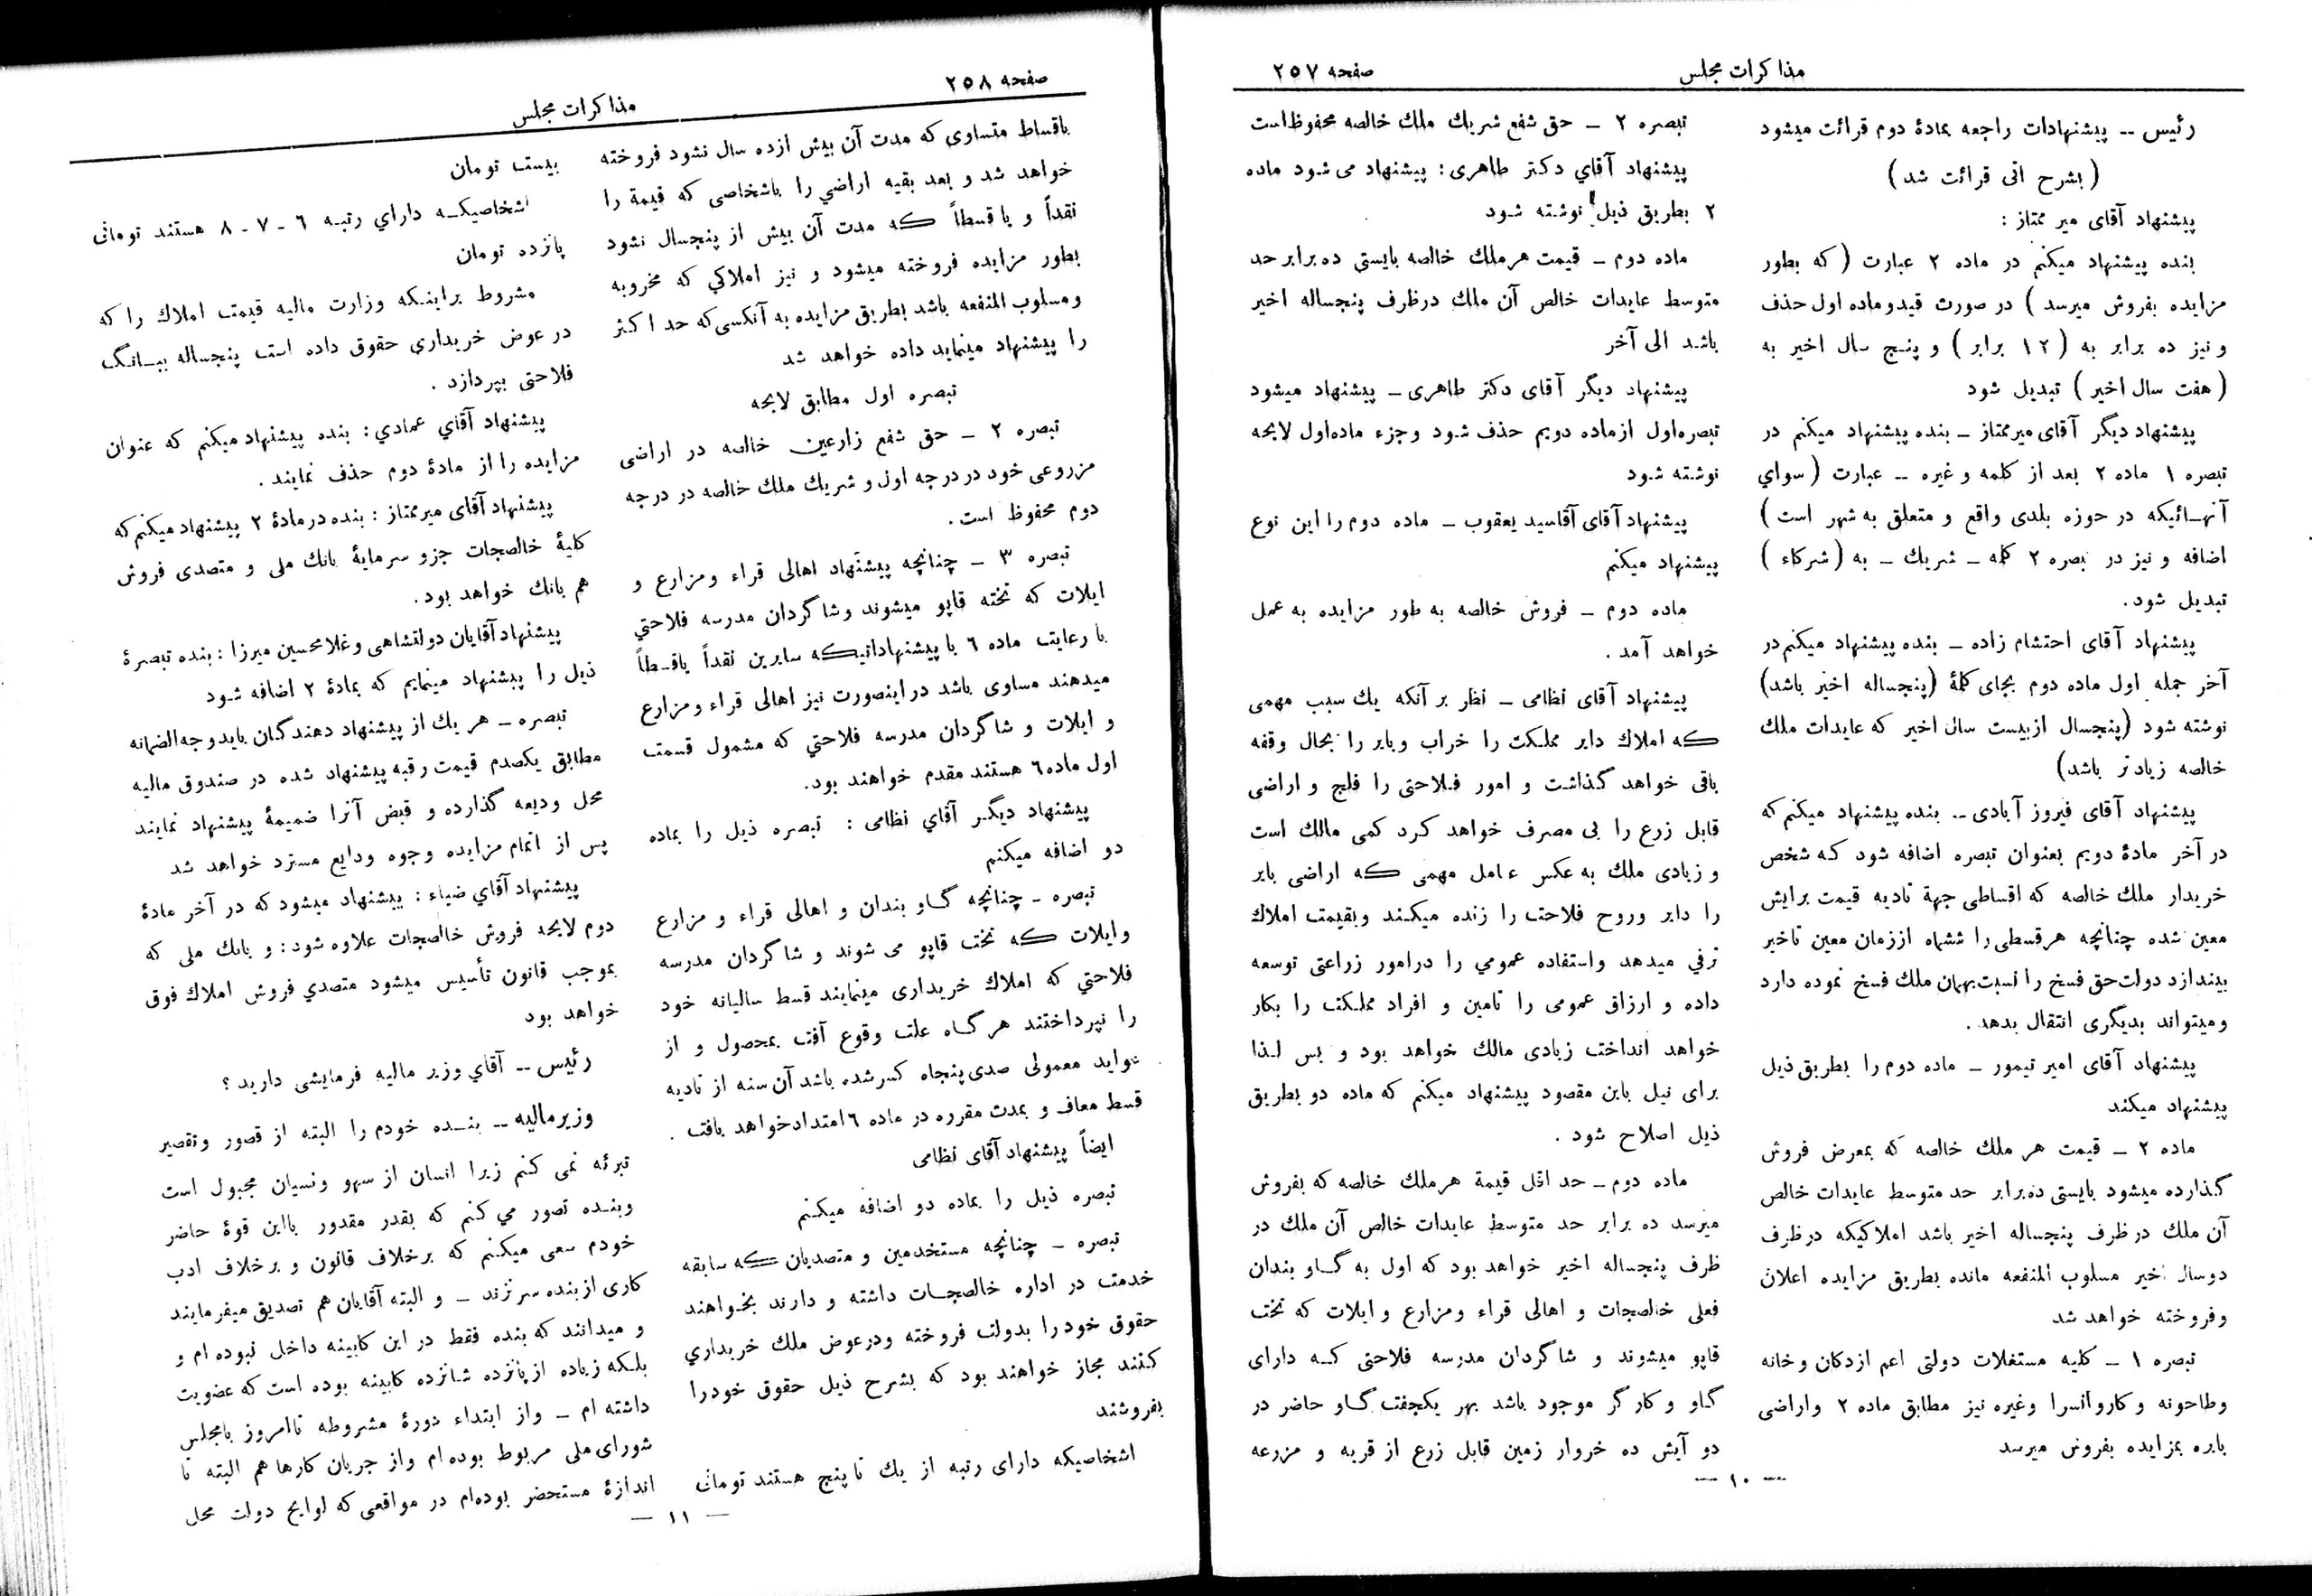 مذاکرات مجلس
صفحه ۲۵۷
رئیس -- پیشنهادات راجعه بمادۀ دوم قرائت میشود
(بشرح اتی قرائت شد)
پیشنهاد آقای میر ممتاز :
بنده پیشنهاد میکنم در ماده ۲ عبارت (که بطور
مزایده بفروش میرسد) در صورت قید و ماده اول حذف
و نیز ده برابر به (۱۲ برابر) و پنج سال اخیر به
(هفت سال اخیر) تبدیل شود
پیشنهاد دیگر آقای میرممتاز ـ بنده پیشنهاد میکنم در
تبصره ۱ ماده ۲ بعد از کلمه و غیره -- عبارت (سوای
آنهائیکه در حوزه بلدی واقع و متعلق به شهر است)
اضافه و نیز در تبصره ۲ کلمه ـ شریك ـ به (شرکاء)
تبدیل شود.
پیشنهاد آقای احتشام زاده ـ بنده پیشنهاد میکنم در
آخر جمله اول ماده دوم بجای کلمۀ (پنجساله اخیر باشد)
نوشته شود (پنجسال ازبیست سال اخیر که عایدات ملك
خالصه زیادتر باشد)
پیشنهاد آقای فیروز آبادی -- بنده پیشنهاد میکنم که
در آخر مادۀ دویم بعنوان تبصره اضافه شود که شخص
خریدار ملك خالصه که اقساطی جهة تادیه قیمت برایش
معین شده چنانچه هرقسطی را ششماه اززمان معین تاخیر
بیندازد دولت حق فسخ را نسبت بهمان ملك فسخ نموده دارد
ومیتواند بدیگری انتقال بدهد.
پیشنهاد آقای امیر تیمور ـ ماده دوم را بطریق ذیل
پیشنهاد میکند
ماده ۲ ـ قیمت هر ملك خالصه که بمعرض فروش
گذارده میشود بایستی ده برابر حد متوسط عایدات خالص
آن ملك در ظرف پنجساله اخیر باشد املاکیکه در ظرف
دوسال اخیر مسلوب المنفعه مانده بطریق مزایده اعلان
و فروخته خواهد شد
تبصره ۱ ـ کلیه مستغلات دولتی اعم ازدکان وخانه
وطاحونه و کاروانسرا وغیره نیز مطابق ماده ۲ واراضی
بایره بمزایده بفروش میرسد
تبصره ۲ ـ حق شفع شریك ملك خالصه محفوظ است
پیشنهاد آقاي دکتر طاهری: پیشنهاد می شود ماده
۲ بطریق ذیل نوشته شود
ماده دوم ـ قیمت هرملك خالصه بایستي ده برابر حد
متوسط عایدات خالص آن ملك درظرف پنجساله اخیر
باشد الی آخر
پیشنهاد دیگر آقای دکتر طاهری ـ پیشنهاد میشود
تبصره اول ازماده دویم حذف شود وجزء ماده اول لایحه
نوشته شود
پیشنهاد آقای آقاسید یعقوب ـ ماده دوم را این نوع
پیشنهاد میکنم
ماده دوم ـ فروش خالصه به طور مزایده به عمل
خواهد آمد.
پیشنهاد آقای نظامی ـ نظر بر آنکه یك سبب مهمی
که املاك دایر مملکت را خراب وبایر را بحال وقفه
باقی خواهد گذاشت و امور فلاحتی را فلج و اراضی
قابل زرع را بی مصرف خواهد کرد کمی مالك است
و زیادی ملك به عکس عامل مهمی که اراضی بایر
را دایر وروح فلاحت را زنده میکند وبقیمت املاك
ترقي میدهد واستفاده عمومي را درامور زراعتی توسعه
داده و ارزاق عمومی را تامین و افراد مملکت را بکار
خواهد انداخت زیادی مالك خواهد بود و بس لذا
برای نیل باین مقصود پیشنهاد میکنم که ماده دو بطریق
ذیل اصلاح شود.
ماده دوم ـ حد اقل قیمة هرملك خالصه که بفروش
میرسد ده برابر حد متوسط عایدات خالص آن ملك در
ظرف پنجساله اخیر خواهد بود که اول به گاو بندان
فعلی خالصجات و اهالی قراء ومزارع و ایلات که تخت
قاپو میشوند و شاگردان مدرسه فلاحتی که دارای
گاو و کارگر موجود باشد بهر یکجفت گاو حاضر در
دو آیش ده خروار زمین قابل زرع از قریه و مزرعه
— ۱۰ —
صفحه ۲۵۸
مذاکرات مجلس
باقساط متساوی که مدت آن بیش ازده سال نشود فروخته
خواهد شد و بعد بقیه اراضي را باشخاصی که قیمة را
نقداً و یا قسطاً که مدت آن بیش از پنجسال نشود
بطور مزایده فروخته میشود و نیز املاکي که مخروبه
ومسلوب المنفعه باشد بطریق مزایده به آنکسی که حد اکثر
را پیشنهاد مینماید داده خواهد شد
تبصره اول مطابق لایحه
تبصره ۲ ـ حق شفع زارعین خالصه در اراضی
مزروعی خود در درجه اول و شریك ملك خالصه در درجه
دوم محفوظ است.
تبصره ۳ ـ چنانچه پیشنهاد اهالی قراء ومزارع و
ایلات که تخته قاپو میشوند وشاگردان مدرسه فلاحتي
با رعایت ماده ٦ با پیشنهاداتیکه سایرین نقداً یاقسطاً
میدهند مساوی باشد دراینصورت نیز اهالی قراء ومزارع
و ایلات و شاگردان مدرسه فلاحتي که مشمول قسمت
اول ماده ٦ هستند مقدم خواهند بود.
پیشنهاد دیگر آقاي نظامی: تبصره ذیل را بماده
دو اضافه میکنم
تبصره ـ چنانچه گاو بندان و اهالی قراء و مزارع
وایلات که تخت قاپو می شوند و شاگردان مدرسه
فلاحتي که املاك خریداری مینمایند قسط سالیانه خود
را نپرداختند هرگاه علت وقوع آفت بمحصول و از
عواید معمولی صدی پنجاه کسر شده باشد آن سنه از تادیه
قسط معاف و بمدت مقرره در ماده ٦ امتداد خواهد یافت.
ایضاً پیشنهاد آقای نظامی
تبصره ذیل را بماده دو اضافه میکنم
تبصره ـ چنانچه مستخدمین و متصدیان که سابقه
خدمت در اداره خالصجات داشته و دارند بخواهند
حقوق خود را بدولت فروخته ودرعوض ملك خریداري
کنند مجاز خواهند بود که بشرح ذیل حقوق خودرا
بفروشند
اشخاصیکه دارای رتبه از یك تا پنج هستند تومانی
بیست تومان
اشخاصیکه داراي رتبه ٦ - ۷ - ۸ هستند تومانی
پانزده تومان
مشروط براینکه وزارت مالیه قیمت املاك را که
در عوض خریداري حقوق داده است پنجساله ببانگ
فلاحتی بپردازد.
پیشنهاد آقاي عمادي: بنده پیشنهاد میکنم که عنوان
مزایده را از مادۀ دوم حذف نمایند.
پیشنهاد آقای میرممتاز: بنده درمادۀ ۲ پیشنهاد میکنم که
کلیۀ خالصجات جزو سرمایۀ بانك ملی و متصدی فروش
هم بانك خواهد بود.
پیشنهاد آقایان دولتشاهی وغلامحسین میرزا: بنده تبصرۀ
ذیل را پیشنهاد مینمایم که بمادۀ ۲ اضافه شود
تبصره ـ هر یك از پیشنهاد دهندگان باید وجه الضمانه
مطابق یکصدم قیمت رقبه پیشنهاد شده در صندوق مالیه
محل ودیعه گذارده و قبض آنرا ضمیمۀ پیشنهاد نمایند
پس از اتمام مزایده وجوه ودایع مسترد خواهد شد
پیشنهاد آقاي ضیاء: پیشنهاد میشود که در آخر مادۀ
دوم لایحه فروش خالصجات علاوه شود: و بانك ملی که
بموجب قانون تأسیس میشود متصدي فروش املاك فوق
خواهد بود
رئیس -- آقاي وزیر مالیه فرمایشی دارید؟
وزیرمالیه -- بنده خودم را البته از قصور وتقصیر
تبرئه نمی کنم زیرا انسان از سهو ونسیان مجبول است
وبنده تصور مي کنم که بقدر مقدور بااین قوۀ حاضر
خودم سعی میکنم که برخلاف قانون و برخلاف ادب
کاری ازبنده سر نزند ـ و البته آقایان هم تصدیق میفرمایند
و میدانند که بنده فقط در این کابینه داخل نبوده ام و
بلکه زیاده از پانزده شانزده کابینه بوده است که عضویت
داشته ام ـ واز ابتداء دورۀ مشروطه تاامروز بامجلس
شورای ملی مربوط بوده ام واز جریان کارها هم البته تا
اندازۀ مستحضر بوده ام در مواقعی که لوایح دولت محل
— ۱۱ —